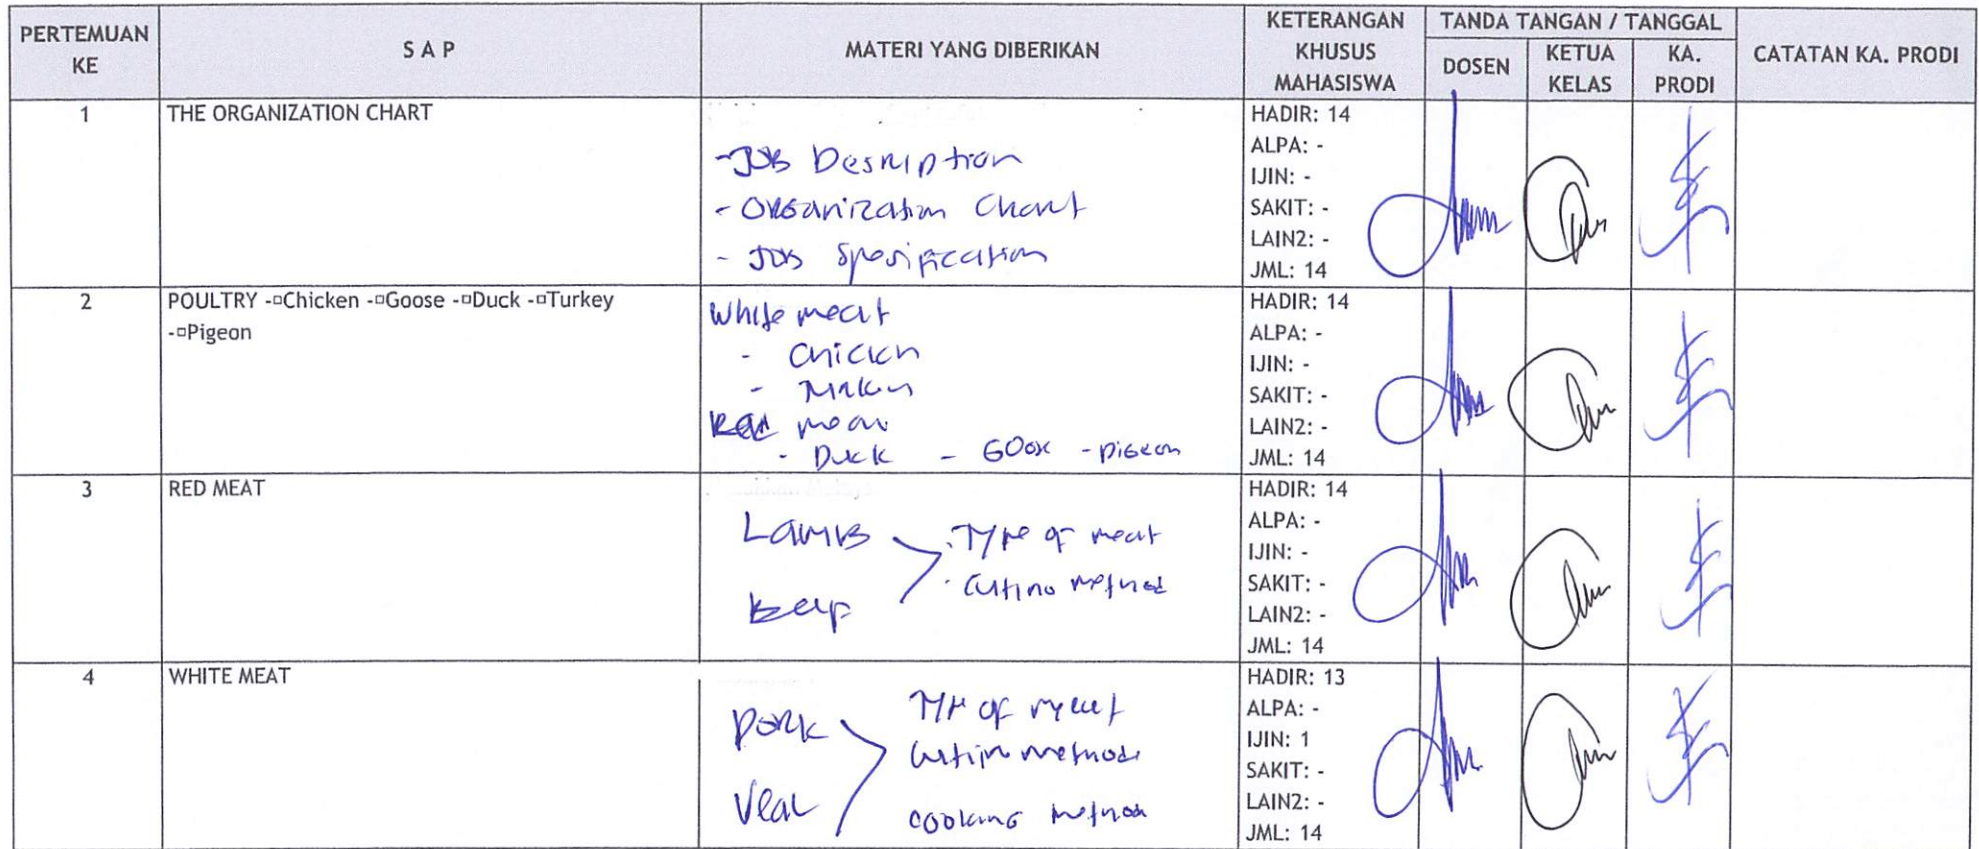 PERTEMUAN KE
S A P
MATERI YANG DIBERIKAN
KETERANGAN KHUSUS MAHASISWA
TANDA TANGAN / TANGGAL
DOSEN
KETUA KELAS
KA. PRODI
CATATAN KA. PRODI
1
THE ORGANIZATION CHART
- Job Desription
- Organization Chart
- Job Spesification
HADIR: 14
ALPA: -
IJIN: -
SAKIT: -
LAIN2: -
JML: 14
2
POULTRY -▫Chicken -▫Goose -▫Duck -▫Turkey
-▫Pigeon
White meat
- Chicken
- Turkey
Red meat
- Duck - Goose - pigeon
HADIR: 14
ALPA: -
IJIN: -
SAKIT: -
LAIN2: -
JML: 14
3
RED MEAT
Lamb
Beef
- Type of meat
- Cutting method
HADIR: 14
ALPA: -
IJIN: -
SAKIT: -
LAIN2: -
JML: 14
4
WHITE MEAT
Pork
Veal
Type of meat
Cutting method
cooking method
HADIR: 13
ALPA: -
IJIN: 1
SAKIT: -
LAIN2: -
JML: 14